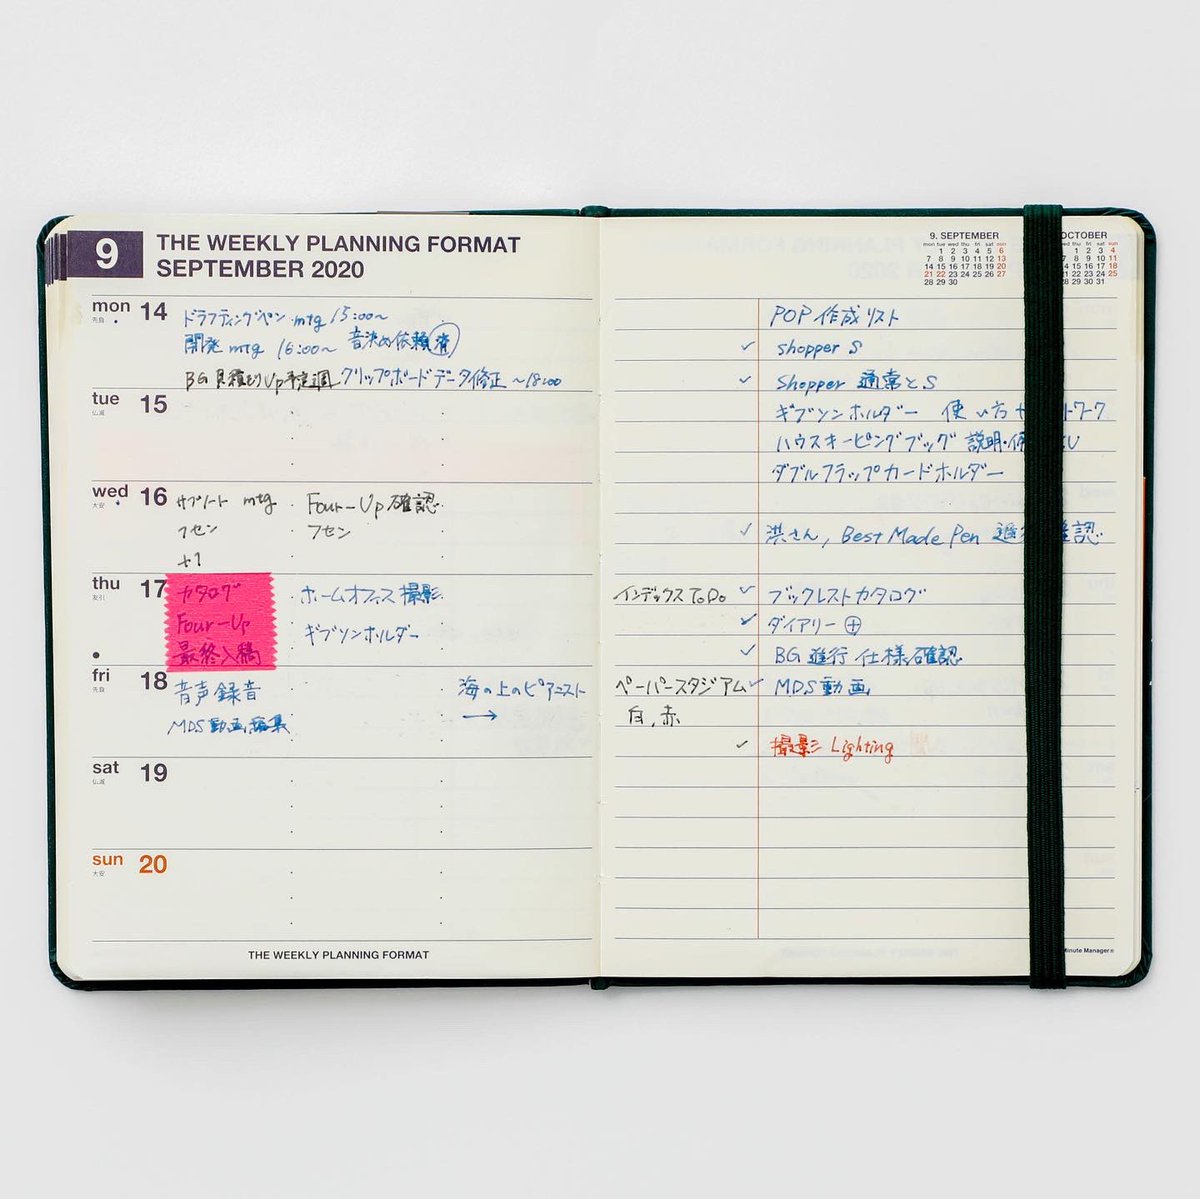 9
THE WEEKLY PLANNING FORMAT
SEPTEMBER 2020
mon 14
先負
ドラフティングペン mtg 15:00〜
開発 mtg 16:00〜 音決め依頼 済
BG 見積もりUp予定週 クリップボードデータ修正 〜18:00
tue 15
仏滅
wed 16
大安
サプリート mtg Four-Up 確認
フセン フセン
+1
thu 17
友引
カタログ ホームオフィス撮影
Four-Up ギブソンホルダー
最終入稿
fri 18
先負
音声録音 海の上のピアニスト
MDS動画編集 →
sat 19
仏滅
sun 20
大安
THE WEEKLY PLANNING FORMAT
9. SEPTEMBER
mon tue wed thu fri sat sun
1 2 3 4 5 6
7 8 9 10 11 12 13
14 15 16 17 18 19 20
21 22 23 24 25 26 27
28 29 30
OCTOBER
ed thu fri sat sun
1 2 3 4
8 9 10 11
15 16 17 18
22 23 24 25
29 30 31
POP 作成リスト
✓ shopper S
✓ Shopper 通常とS
ギブソンホルダー 使い方 + トワーク
ハウスキーピングブッグ 説明・使
ダブルフラップカードホルダー
✓ 洪さん, Best Made Pen 進行 確認
インデックス ToDo ✓ ブックレストカタログ
✓ ダイアリー ⊕
✓ BG 進行 仕様確認
ペーパースタジアム ✓ MDS動画
白, 赤
✓ 撮影 Lighting
Minute Manager®